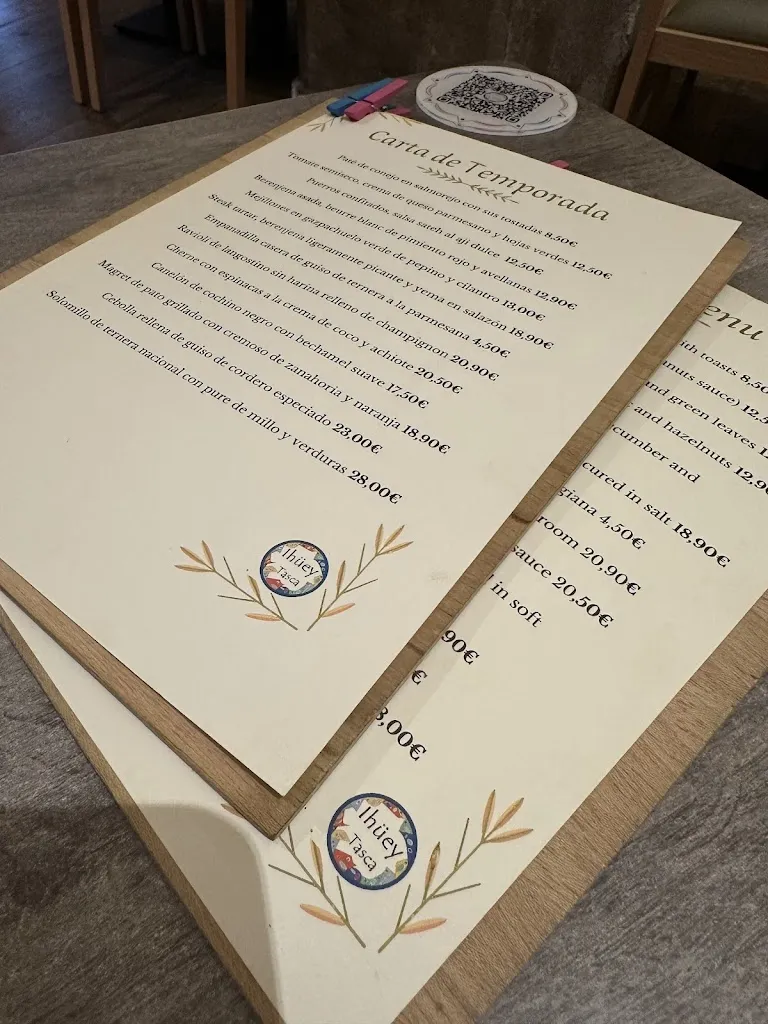 Carta de Temporada
Paté de conejo en salmorejo con sus tostadas 8,50€
Tomate semiseco, crema de queso parmesano y hojas verdes 12,50€
Puerros confitados, salsa sateh al aji dulce 12,50€
Berenjena asada, beurre blanc de pimiento rojo y avellanas 12,90€
Mejillones en gazpachuelo verde de pepino y cilantro 13,00€
Steak tartar, berenjena ligeramente picante y yema en salazón 18,90€
Empanadilla casera de guiso de ternera a la parmesana 4,50€
Ravioli de langostino sin harina relleno de champignon 20,90€
Cherne con espinacas a la crema de coco y achiote 20,50€
Canelón de cochino negro con bechamel suave 17,50€
Magret de pato grillado con cremoso de zanahoria y naranja 18,90€
Cebolla rellena de guiso de cordero especiado 23,00€
Solomillo de ternera nacional con pure de millo y verduras 28,00€
Ihüey
Tasca
enu
ith toasts 8,50
nuts sauce) 12,5
and green leaves 1
and hazelnuts 12,90
cumber and
cured in salt 18,90€
giana 4,50€
room 20,90€
sauce 20,50€
in soft
90€
€
3,00€
Ihüey
Tasca